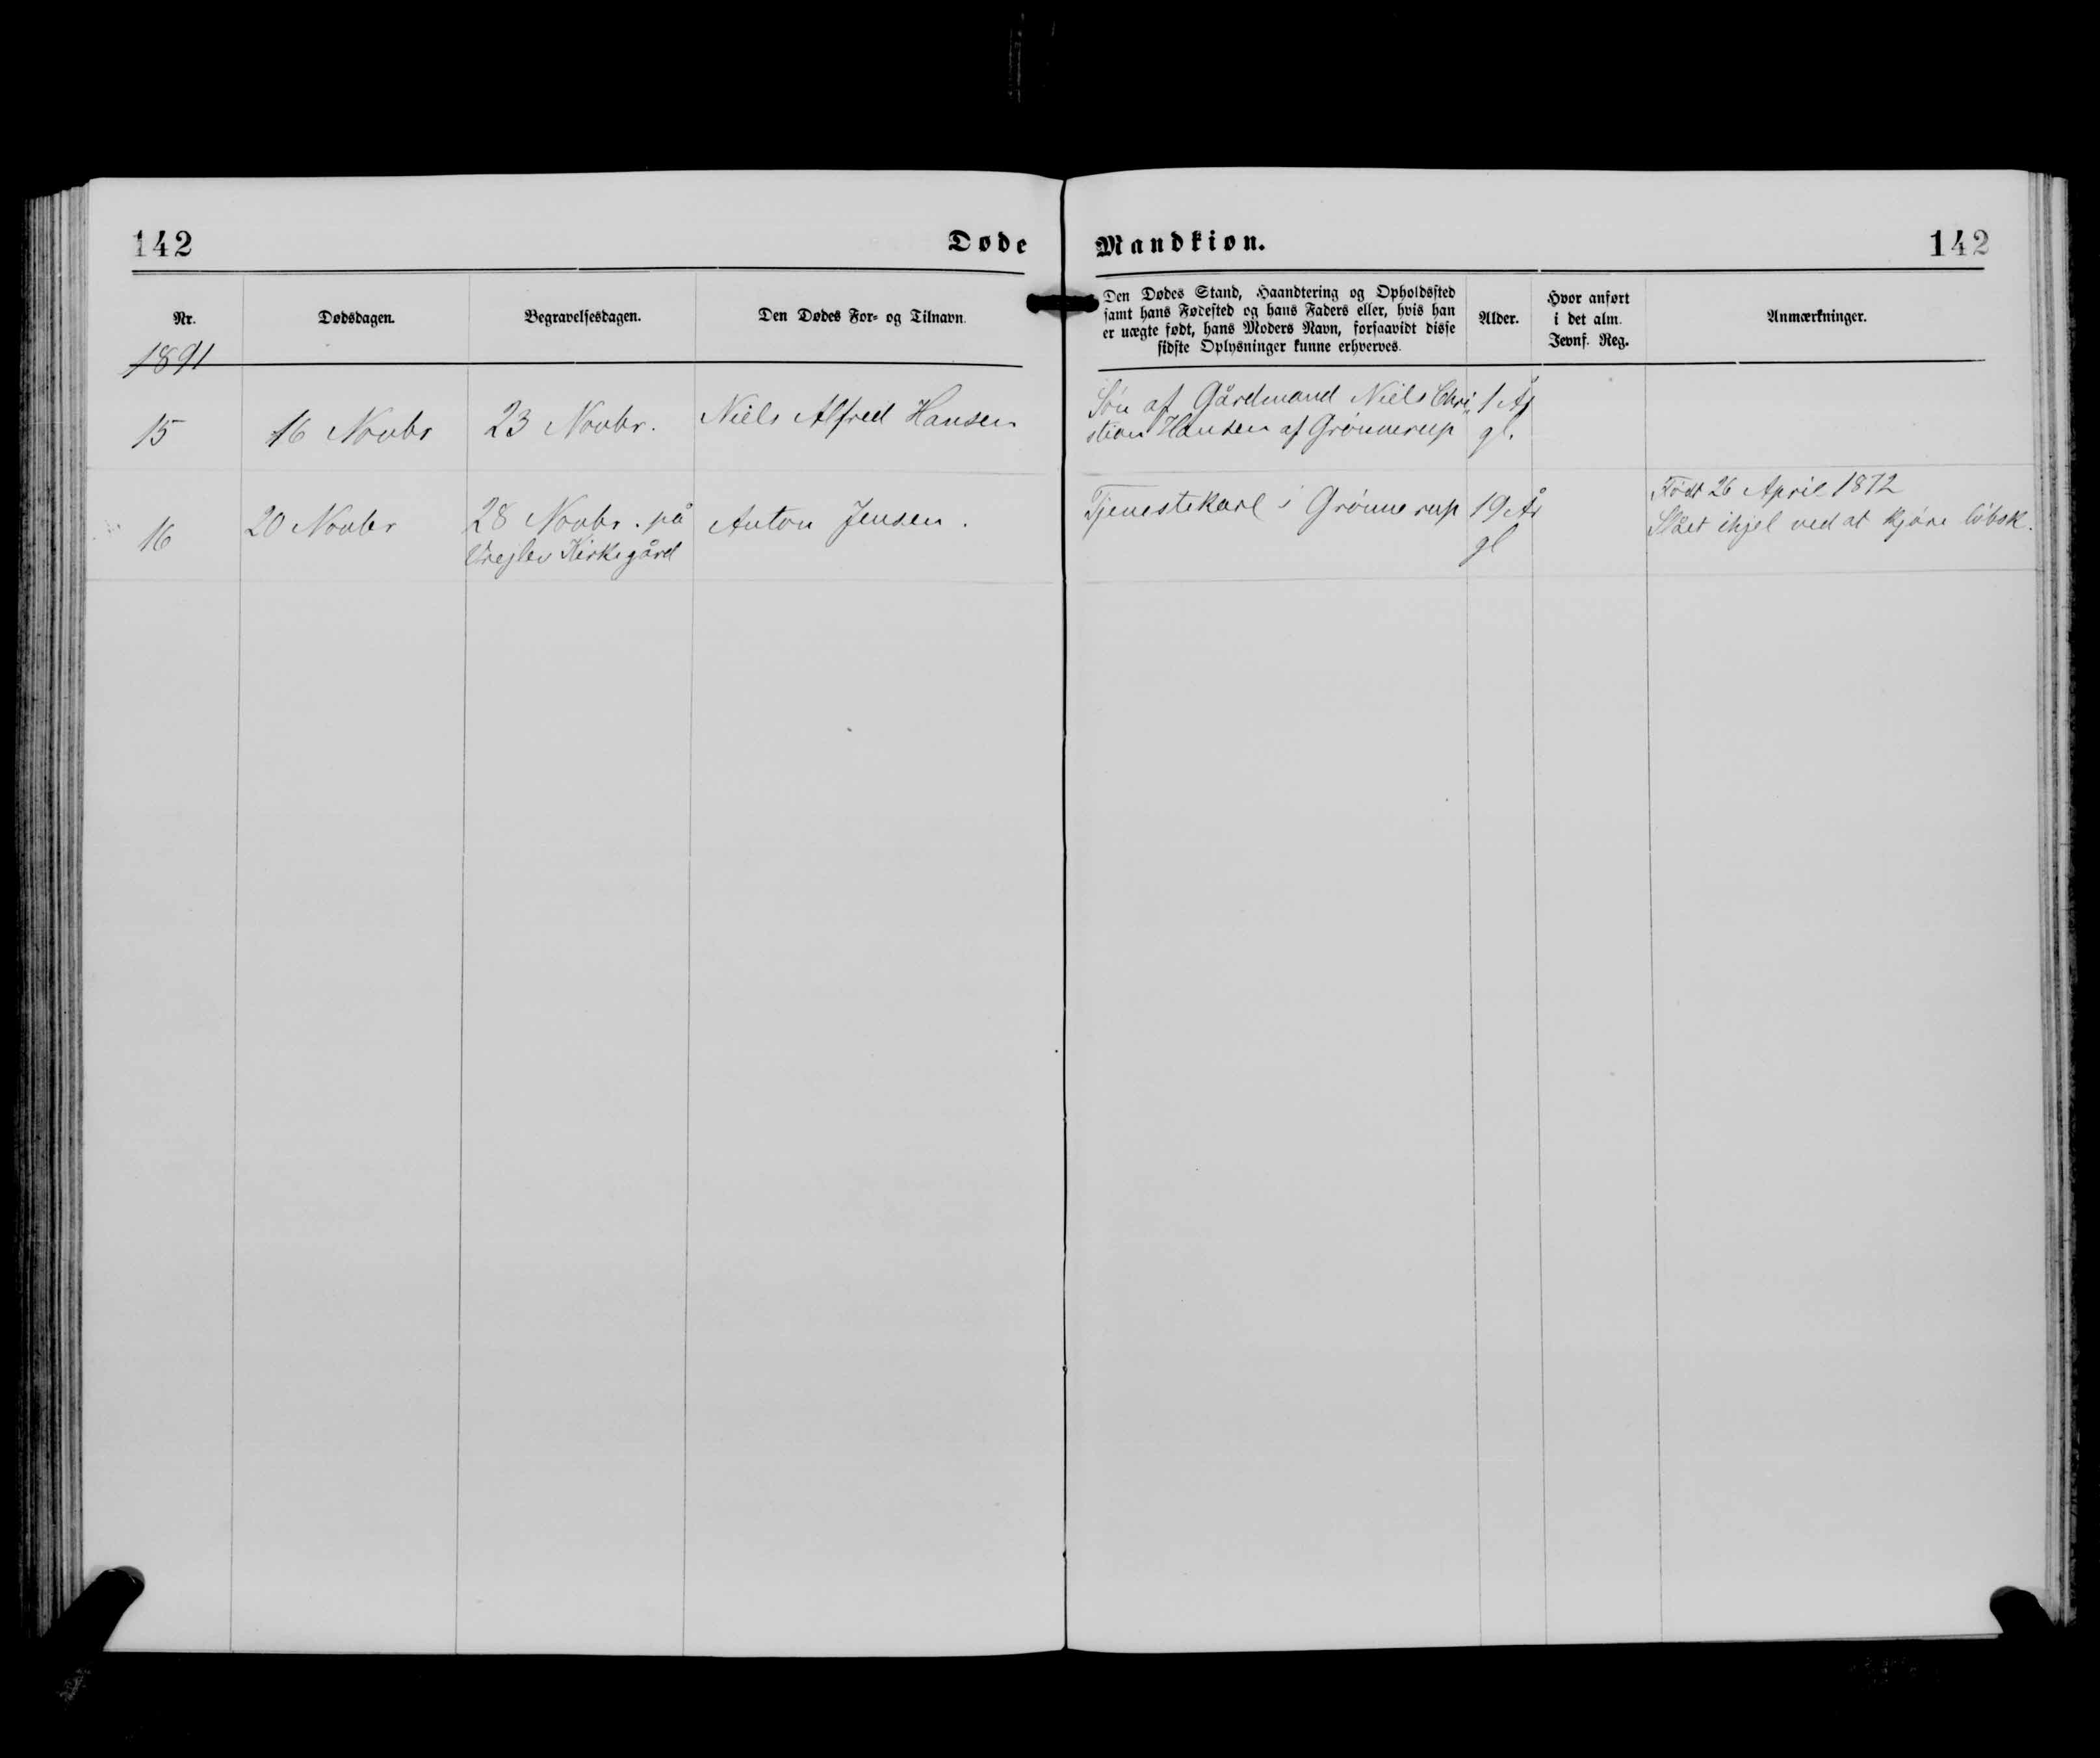 142
Døde
Mandkiøn.
142
Nr.
Dødsdagen.
Begravelsesdagen.
Den Dødes For- og Tilnavn.
Den Dødes Stand, Haandtering og Opholdssted
samt hans Fødested og hans Faders eller, hvis han
er uægte født, hans Moders Navn, forsaavidt disse
sidste Oplysninger kunne erhverves.
Alder.
Hvor anført
i det alm.
Jevnf. Reg.
Anmærkninger.
1891
15
16 Novbr
23 Novbr.
Niels Alfred Hansen
Søn af Gårdmand Niels Chri„
stian Hansen af Grønnerup
1 År
gl.
16
20 Novbr
28 Novbr. på
Vrejlev Kirkegård
Anton Jensen.
Tjenestekarl i Grønnerup
19 År
gl
Født 26 April 1872
Slået ihjel ved at kjøre løbsk.